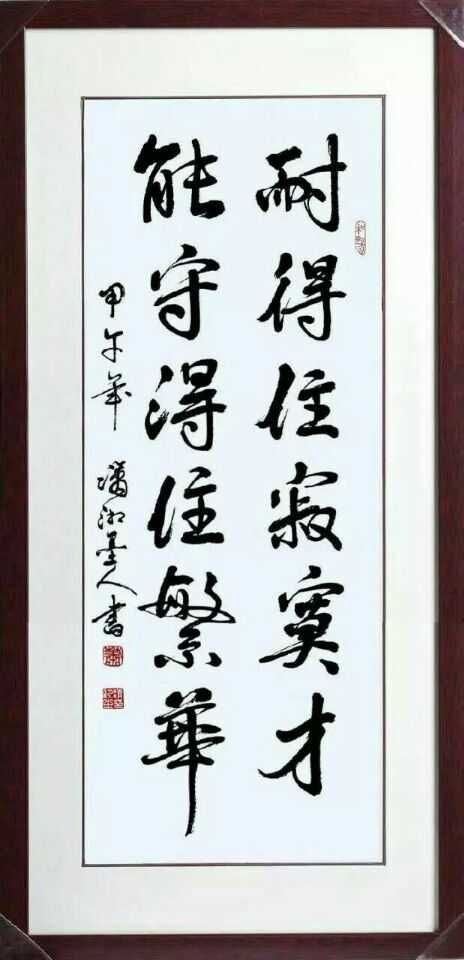 耐得住寂寞才
能守得住繁華
甲午年 瀟湘墨人書